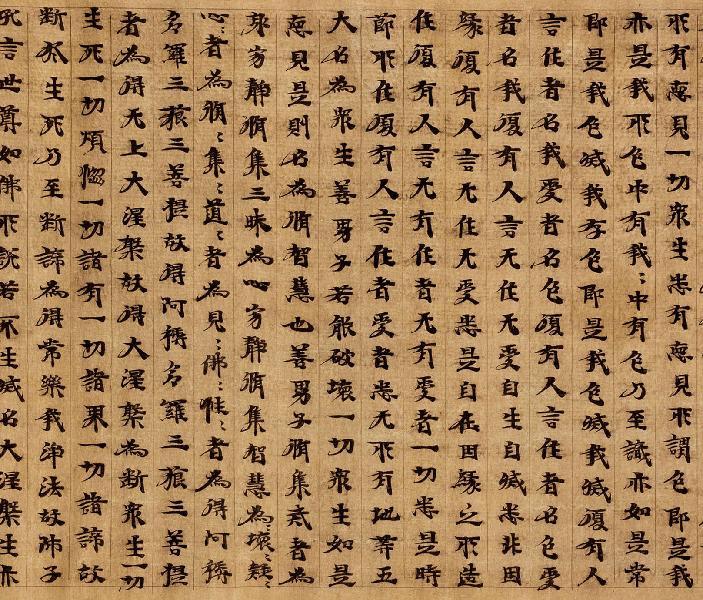 所有惡見一切衆生悉有惡見所謂色即是我
亦是我所色中有我〻中有色乃至識亦如是常
即是我色滅我存色即是我色滅我滅復有人
言作者名我受者名色復有人言作者名色受
者名我復有人言无作无受自生自滅悉非因
縁復有人言无作无受悉是自在因縁之所造
作復有人言无有作者无有受者一切悉是時
節所作復有人言作者受者悉无所有地等五
大名為衆生善男子若能破壞一切衆生如是
惡見是則名為脩智慧也善男子脩集戒者為
身寂靜脩集三昧為心寂靜脩集智慧為壞〻疑〻
心〻者為脩〻集〻道〻者為見〻佛〻性〻者為得阿耨
多羅三藐三菩提故得阿耨多羅三藐三菩提
者為得无上大涅槃故得大涅槃為斷衆生一切
生死一切煩惱一切諸有一切諸界一切諸諦故
斷於生死乃至斷諦為得常樂我淨法故師子
吼言世尊如佛所說若不生滅名大涅槃生亦